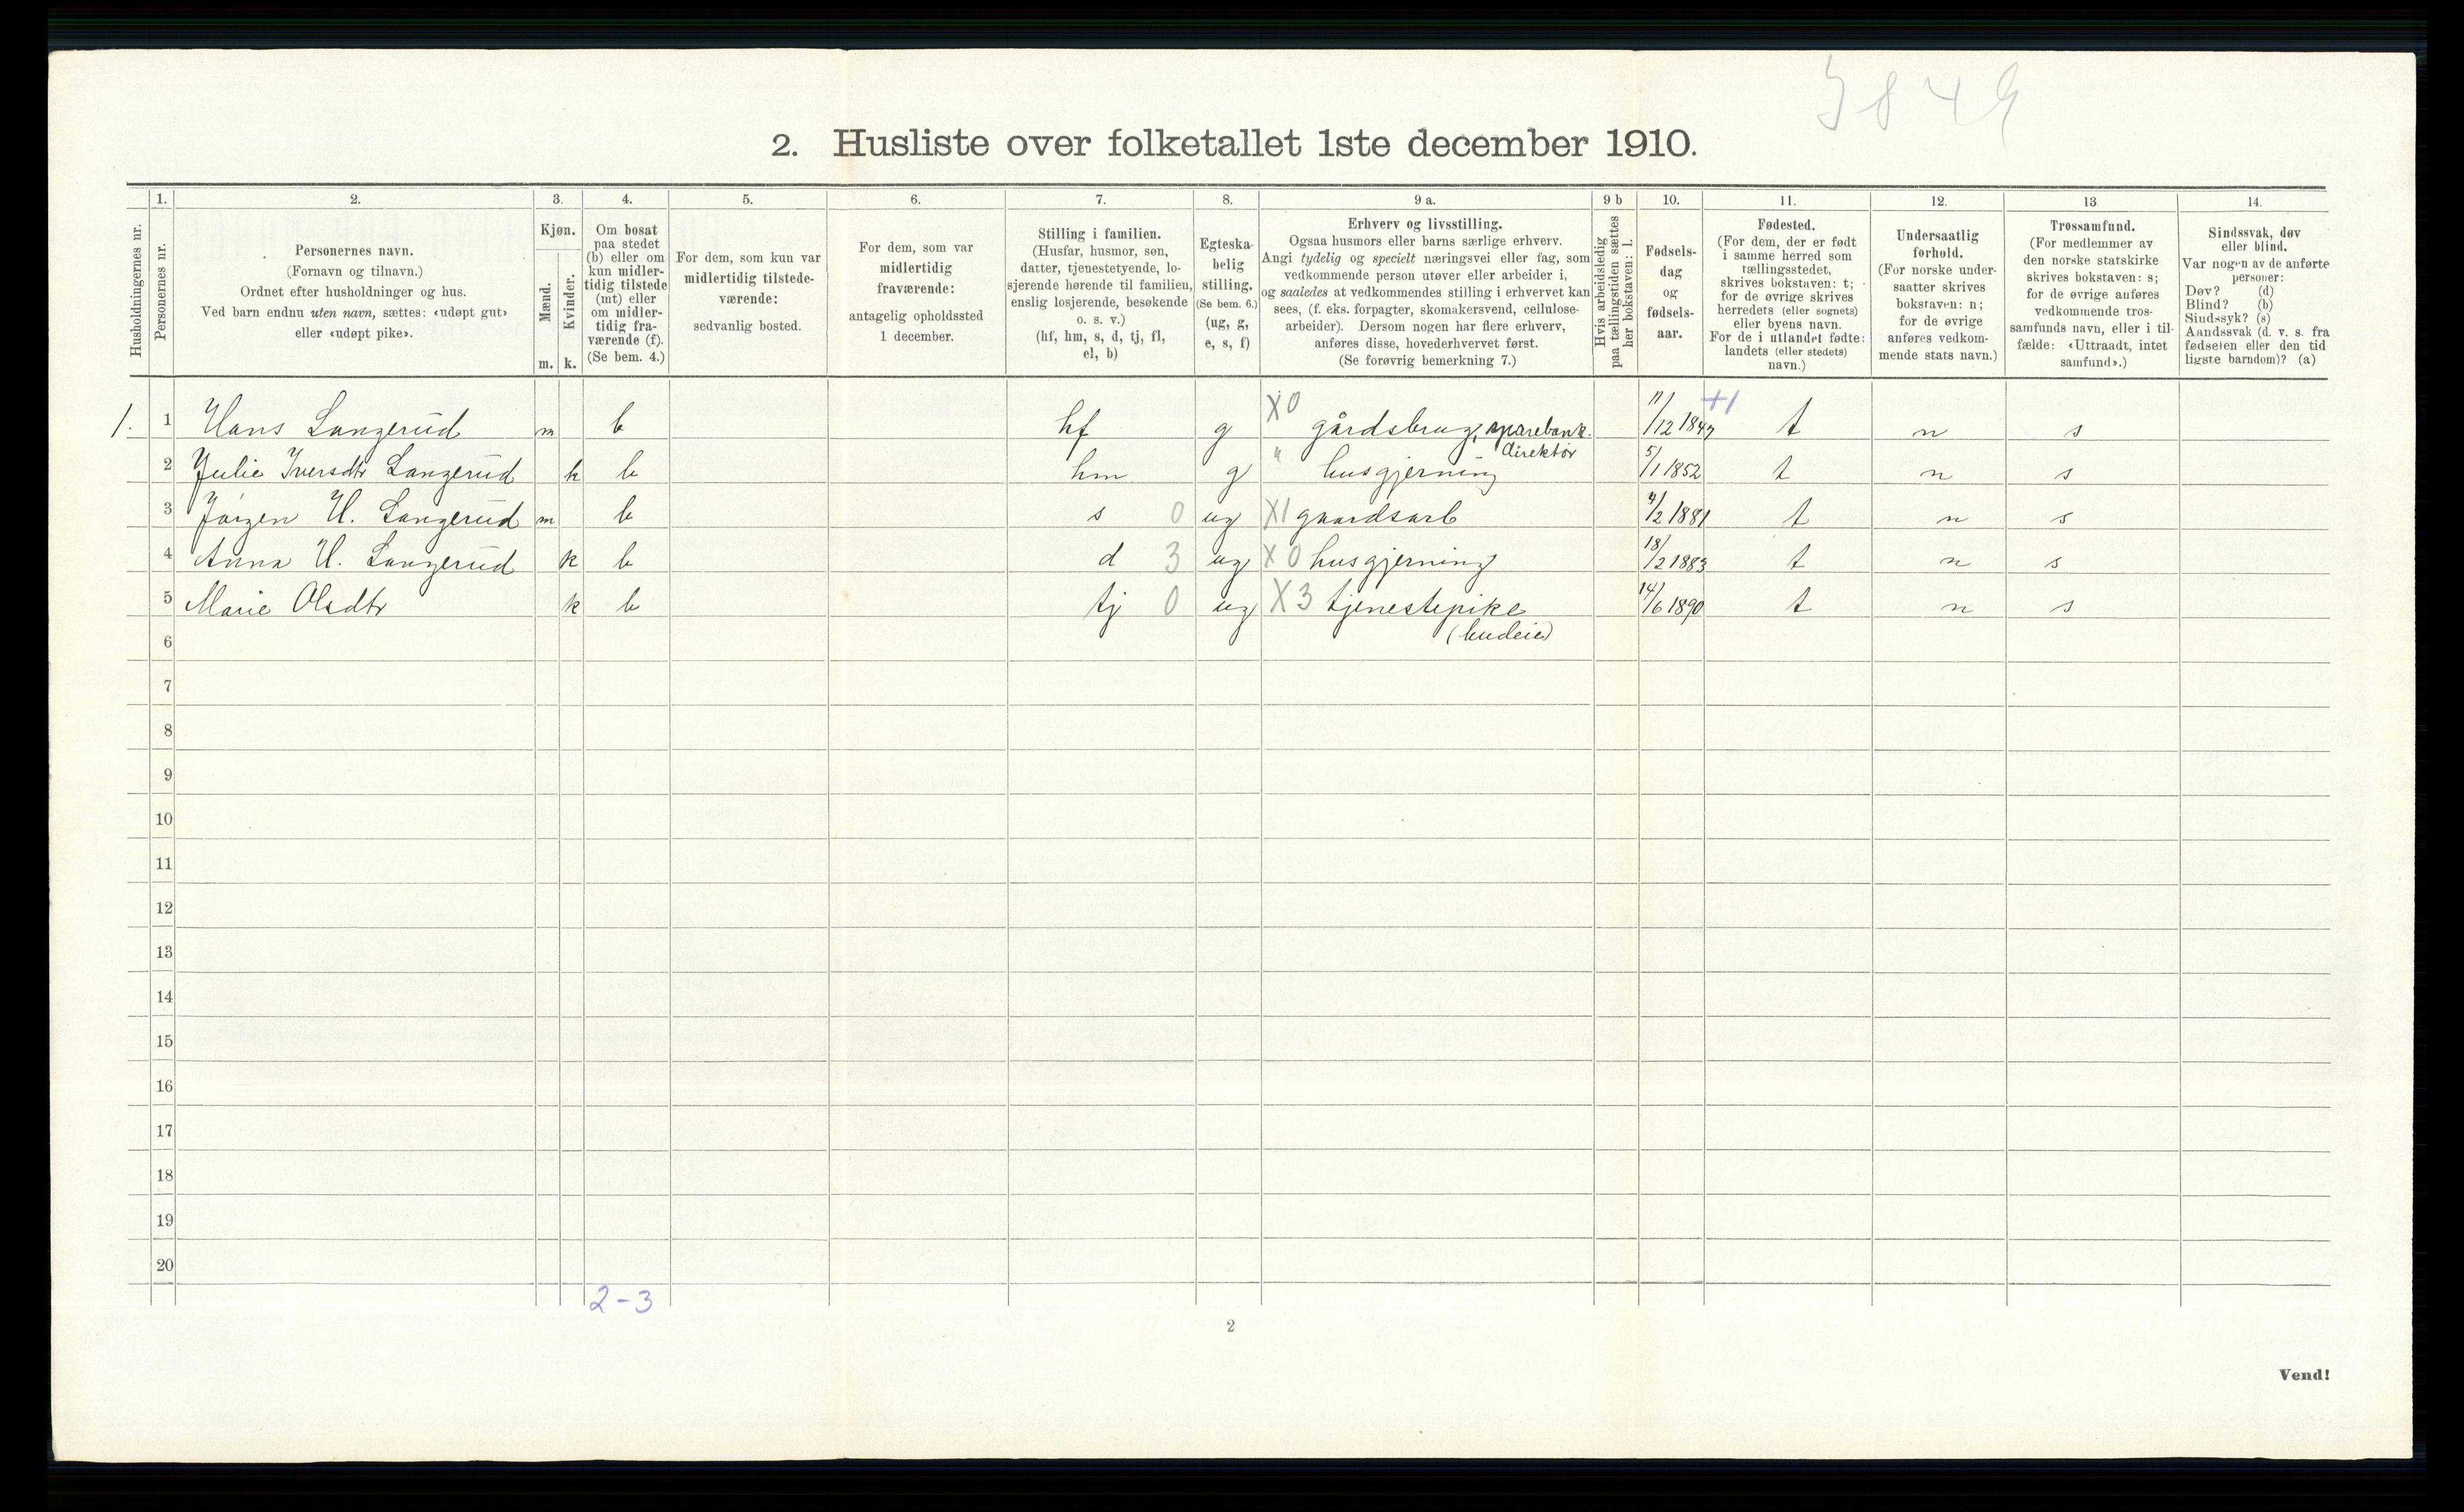 3849
2. Husliste over folketallet 1ste december 1910.
Husholdningernes nr.
1.
Personernes nr.
2.
Personernes navn.
(Fornavn og tilnavn.)
Ordnet efter husholdninger og hus.
Ved barn endnu uten navn, sættes: «udøpt gut»
eller «udøpt pike».
3.
Kjøn.
Mænd.
Kvinder.
m. k.
4.
Om bosat
paa stedet
(b) eller om
kun midler-
tidig tilstede
(mt) eller
om midler-
tidig fra-
værende (f).
(Se bem. 4.)
5.
For dem, som kun var
midlertidig tilstede-
værende:
sedvanlig bosted.
6.
For dem, som var
midlertidig
fraværende:
antagelig opholdssted
1 december.
7.
Stilling i familien.
(Husfar, husmor, søn,
datter, tjenestetyende, lo-
sjerende hørende til familien,
enslig losjerende, besøkende
o. s. v.)
(hf, hm, s, d, tj, fl,
el, b)
8.
Egteska-
belig
stilling.
(Se bem. 6.)
(ug, g,
e, s, f)
9 a.
Erhverv og livsstilling.
Ogsaa husmors eller barns særlige erhverv.
Angi tydelig og specielt næringsvei eller fag, som
vedkommende person utøver eller arbeider i,
og saaledes at vedkommendes stilling i erhvervet kan
sees, (f. eks. forpagter, skomakersvend, cellulose-
arbeider). Dersom nogen har flere erhverv,
anføres disse, hovederhvervet først.
(Se forøvrig bemerkning 7.)
9 b
Hvis arbeidsledig
paa tællingstiden sættes
her bokstaven: l.
10.
Fødsels-
dag
og
fødsels-
aar.
11.
Fødested.
(For dem, der er født
i samme herred som
tællingsstedet,
skrives bokstaven: t;
for de øvrige skrives
herredets (eller sognets)
eller byens navn.
For de i utlandet fødte:
landets (eller stedets)
navn.)
12.
Undersaatlig
forhold.
(For norske under-
saatter skrives
bokstaven: n;
for de øvrige
anføres vedkom-
mende stats navn.)
13
Trossamfund.
(For medlemmer av
den norske statskirke
skrives bokstaven: s;
for de øvrige anføres
vedkommende tros-
samfunds navn, eller i til-
fælde: «Uttraadt, intet
samfund».)
14.
Sindssvak, døv
eller blind.
Var nogen av de anførte
personer:
Døv? (d)
Blind? (b)
Sindssyk? (s)
Aandssvak (d. v. s. fra
fødselen eller den tid
ligste barndom)? (a)
1. 1 Hans Langerud m b hf g X0 gårdsbrug, sparebank- 11/12 1847 +1 t n s
direktør
2 Julie Iversdtr Langerud k b hm g " husgjerning 5/1 1852 t n s
3 Jørgen H. Langerud m b s 0 ug X1 gaardsarb 4/2 1881 t n s
4 Anna H. Langerud k b d 3 ug X0 husgjerning 18/2 1883 t n s
5 Marie Olsdtr k b tj 0 ug X3 tjenestepike 14/6 1890 t n s
(budeie)
6
7
8
9
10
11
12
13
14
15
16
17
18
19
20
2-3
2
Vend!